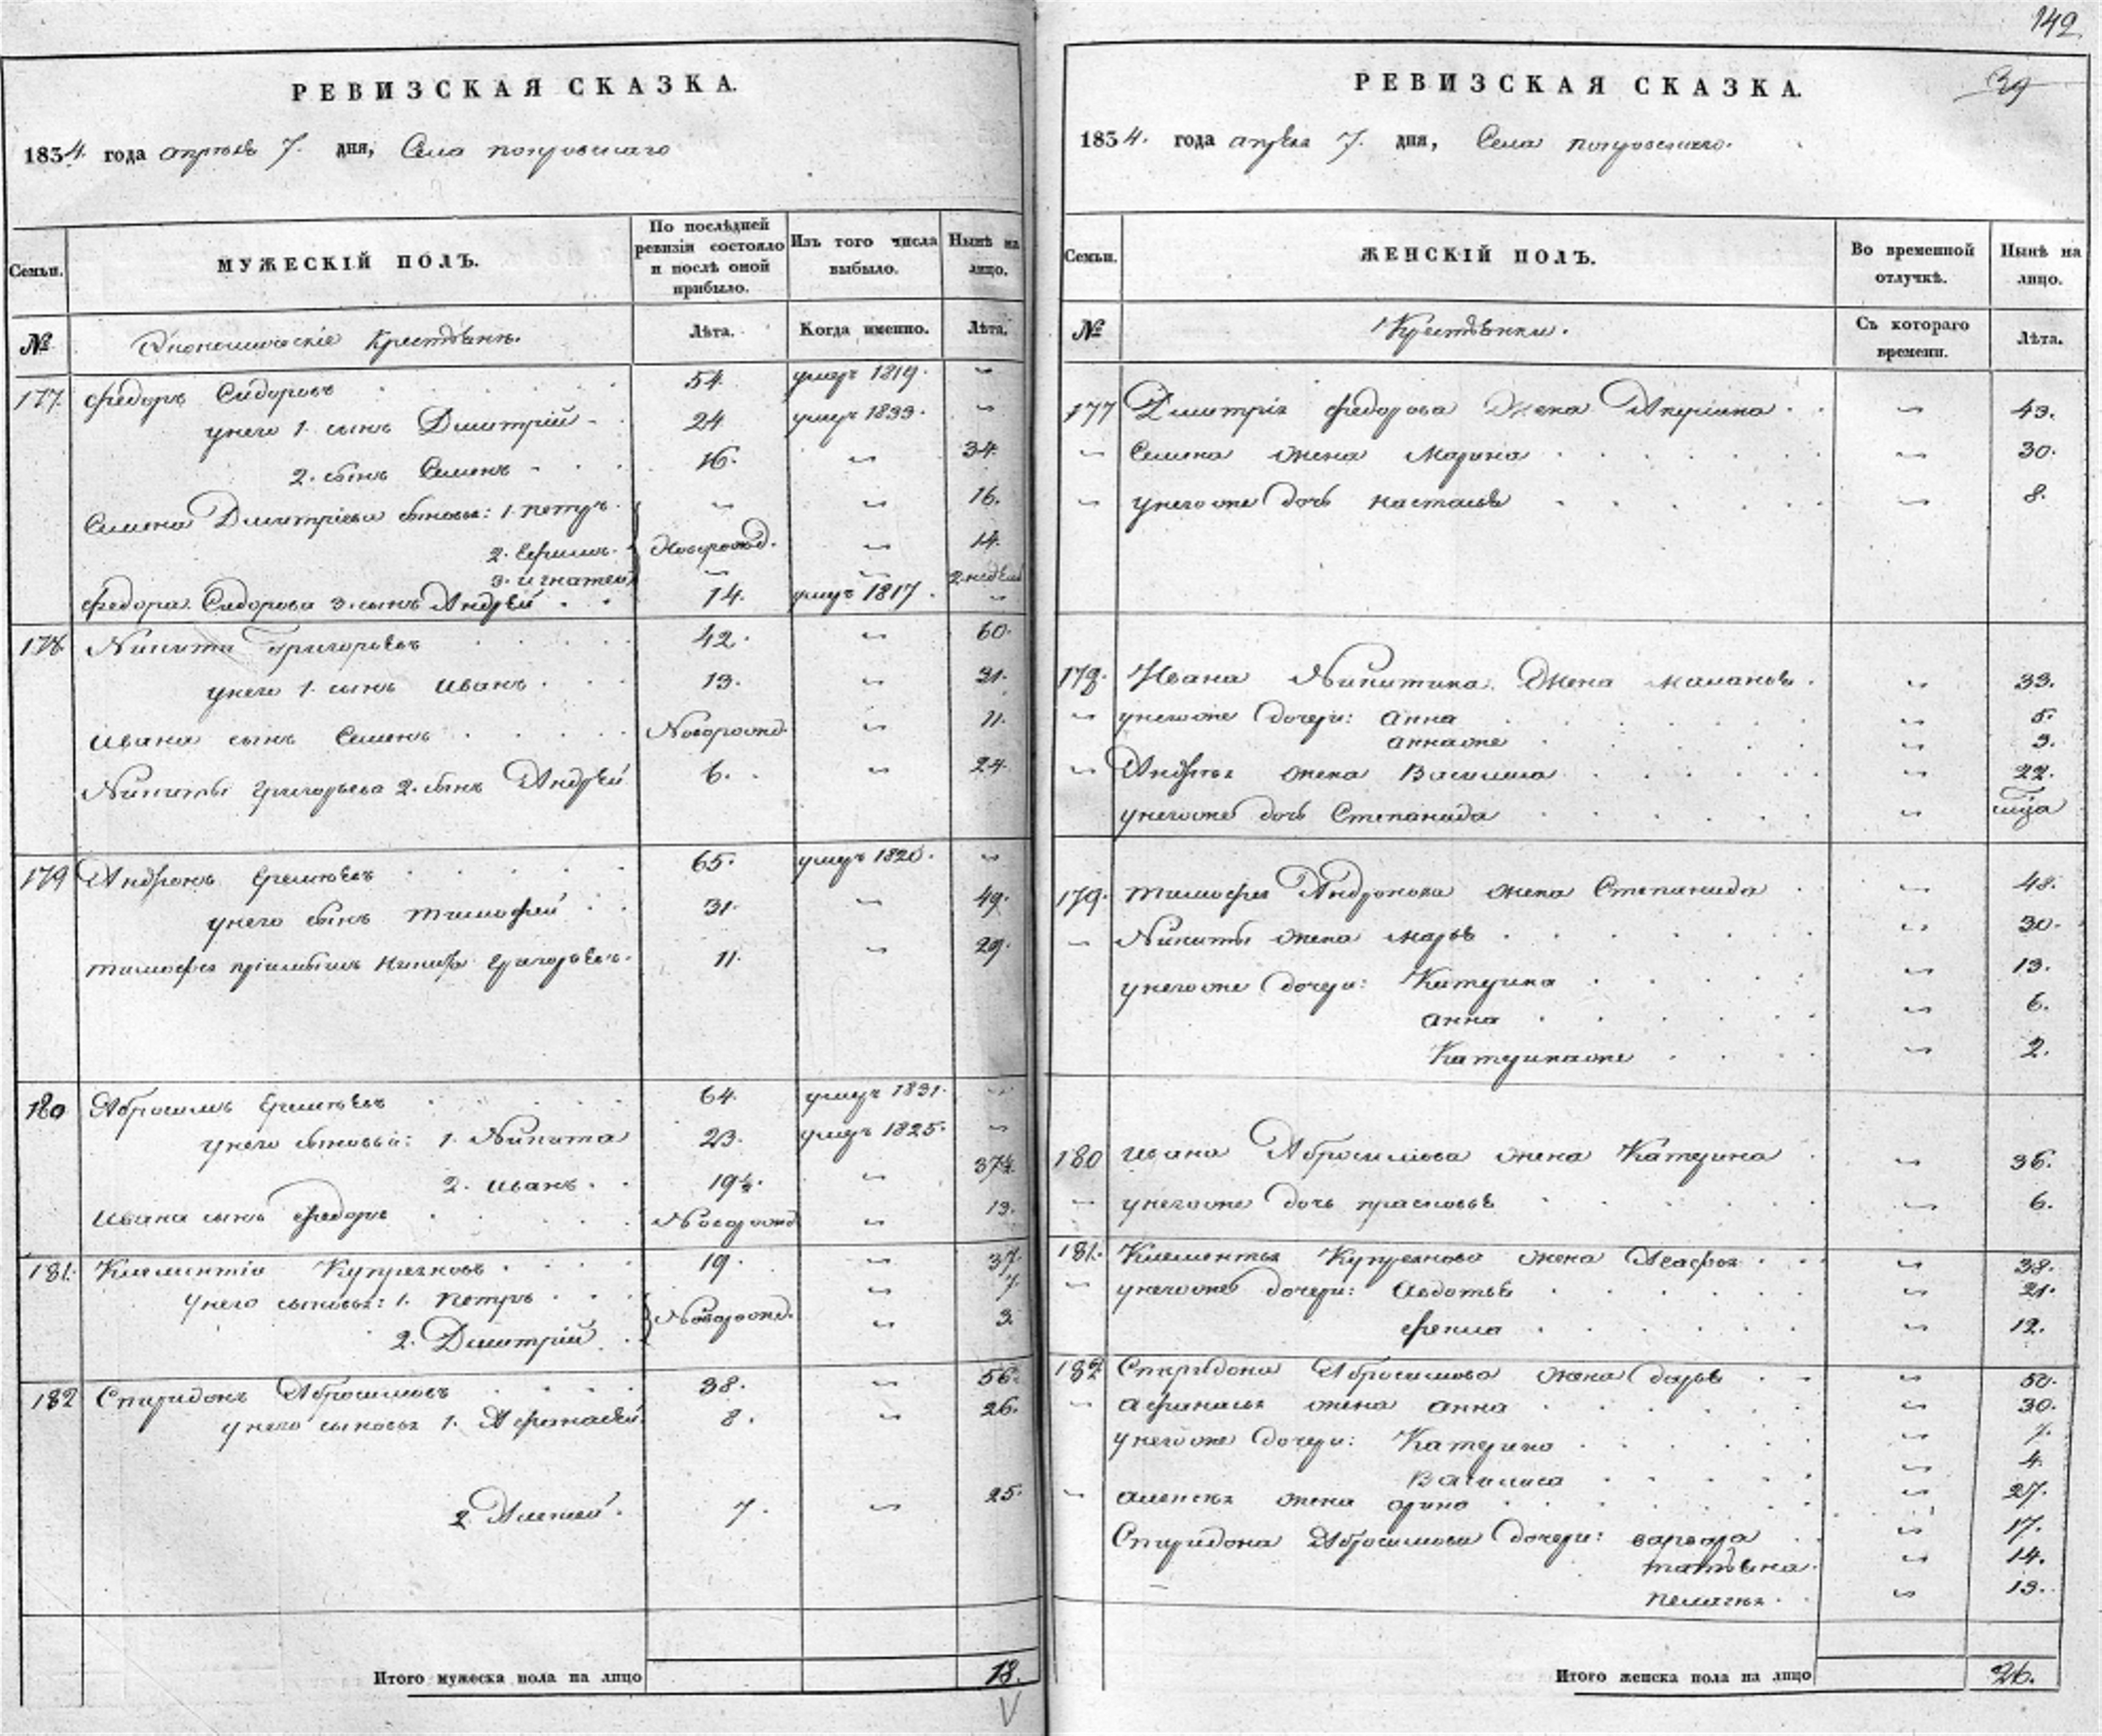 142
РЕВИЗСКАЯ СКАЗКА.
1834. года апрѣля 7. дня, Села покровскаго
Семьи.
МУЖЕСКІЙ ПОЛЪ.
По послѣдней ревизіи состояло и послѣ оной прибыло.
Изъ того числа выбыло.
Нынѣ на лицо.
№
Экономическіе Крестьяне.
Лѣта.
Когда именно.
Лѣта.
177. федоръ Сидоровъ 54. умеръ 1819. "
унего 1. сынъ Дмитрій 24 умеръ 1833. "
2. сынъ Семенъ 16. " 34.
Семена Дмитріева сыновья: 1. петръ. " " 16.
2. Ефимъ. Новорожд. " 14.
3. игнатей " " 2 недели
федора Сидорова 3. сынъ Андрей 14. умеръ 1817. "
178. Никита Григорьевъ 42. " 60.
унего 1. сынъ иванъ 13. " 31.
ивана сынъ Семенъ Новорожд. " 11.
Никиты григорьева 2. сынъ Андрей 6. " 24.
179 Андронъ Еремѣевъ 65. умеръ 1820. "
унего сынъ тимофей 31. " 49.
тимофея пріимышъ Никифоръ Григорьевъ. 11. " 29.
180 Абросимъ Еремѣевъ 64. умеръ 1831. "
унего сыновья: 1. Никита 23. умеръ 1825. "
2. иванъ. 19½. " 37½.
ивана сынъ федоръ Новорожд " 13.
181. Клементій Купреяновъ 19. " 37.
унего сыновья: 1. петръ " 7.
2. Дмитрій Новорожд. " 3.
182 Спиридонъ Абросимовъ 38. " 56.
унего сыновья 1. Афанасей 8. " 26.
2 Алексей. 7. " 25.
Итого мужеска пола на лицо 18.
РЕВИЗСКАЯ СКАЗКА.
39
1834. года апреля 7. дня, Села покровскаго.
Семьи.
ЖЕНСКІЙ ПОЛЪ.
Во временной отлучкѣ.
Нынѣ на лицо.
№
Крестьянки.
Съ котораго времени.
Лѣта.
177 Дмитрія федорова Жена Акулина " 43.
" Семена жена Марина " 30.
" унегоже дочь настасья " 8.
178. Ивана Никитина Жена маланья " 33.
" унегоже дочери: анна " 5.
аннаже " 3.
" Андрея жена Василиса " 22.
унегоже дочь Степанида "
179. тимофея Андронова жена Степанида " 48.
" Никиты жена марья " 30.
унегоже дочери: Катерина " 13.
анна " 6.
Катеринаже " 2.
180 ивана Абросимова жена Катерина " 36.
" унегоже дочь прасковья " 6.
181. Клементья Купреянова жена Агафья " 38.
" унегоже дочери: авдотья " 21.
фекла " 12.
182 Спиридона Абросимова жена дарья " 50.
" афанасья жена анна " 30.
унегоже дочери: Катерина " 7.
Василиса " 4.
" алексея жена орина " 27.
Спиридона Абросимова дочери: варвара " 17.
татьяна. " 14.
пелагея " 13.
Итого женска пола на лицо 26.